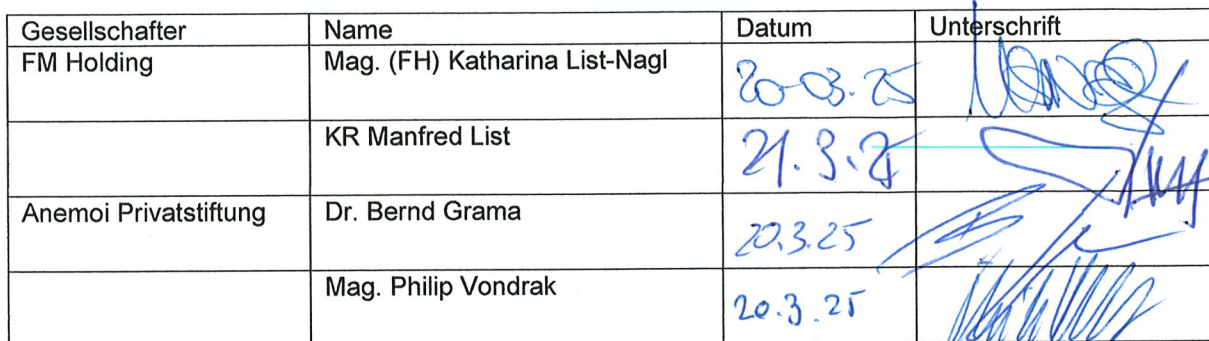 Gesellschafter Name Datum Unterschrift
FM Holding Mag. (FH) Katharina List-Nagl 20-03.25
KR Manfred List 21.3.25
Anemoi Privatstiftung Dr. Bernd Grama 20.3.25
Mag. Philip Vondrak 20.3.25